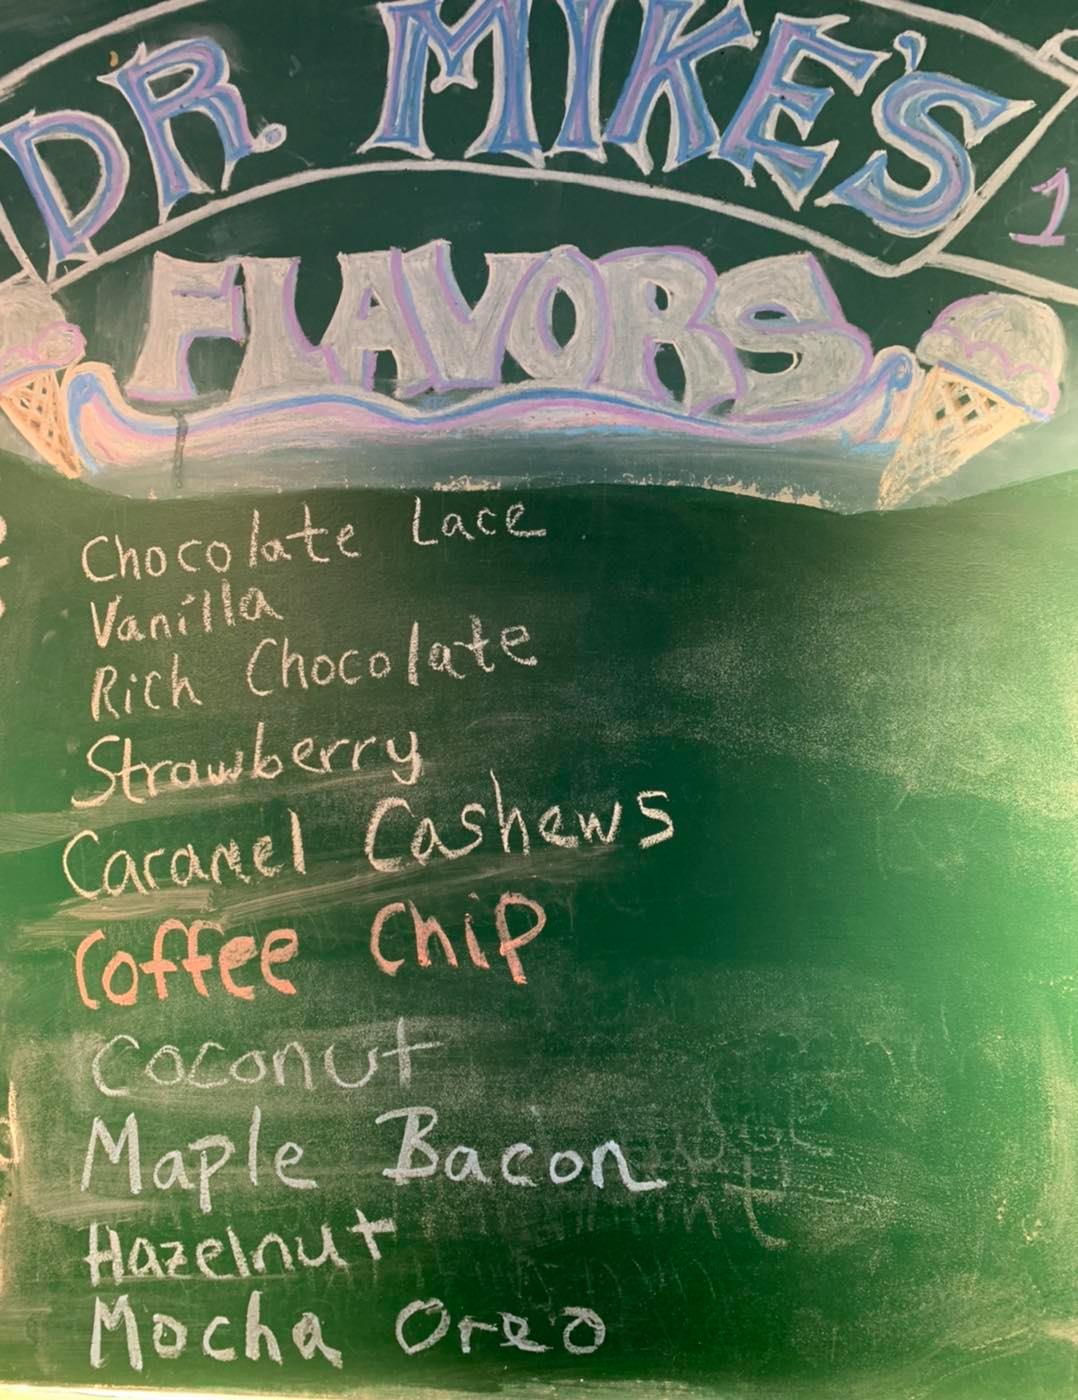 DR. MIKE'S
1
FLAVORS
Chocolate Lace
Vanilla
Rich Chocolate
Strawberry
Caramel Cashews
Coffee Chip
Coconut
Maple Bacon
Hazelnut
Mocha Oreo